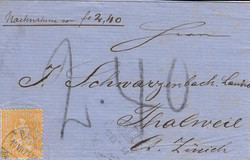 Nachnahme von fr 2,40
Herrn
J. Schwarzenbach-Landis
2.40
Thalweil
Ct. Zürich